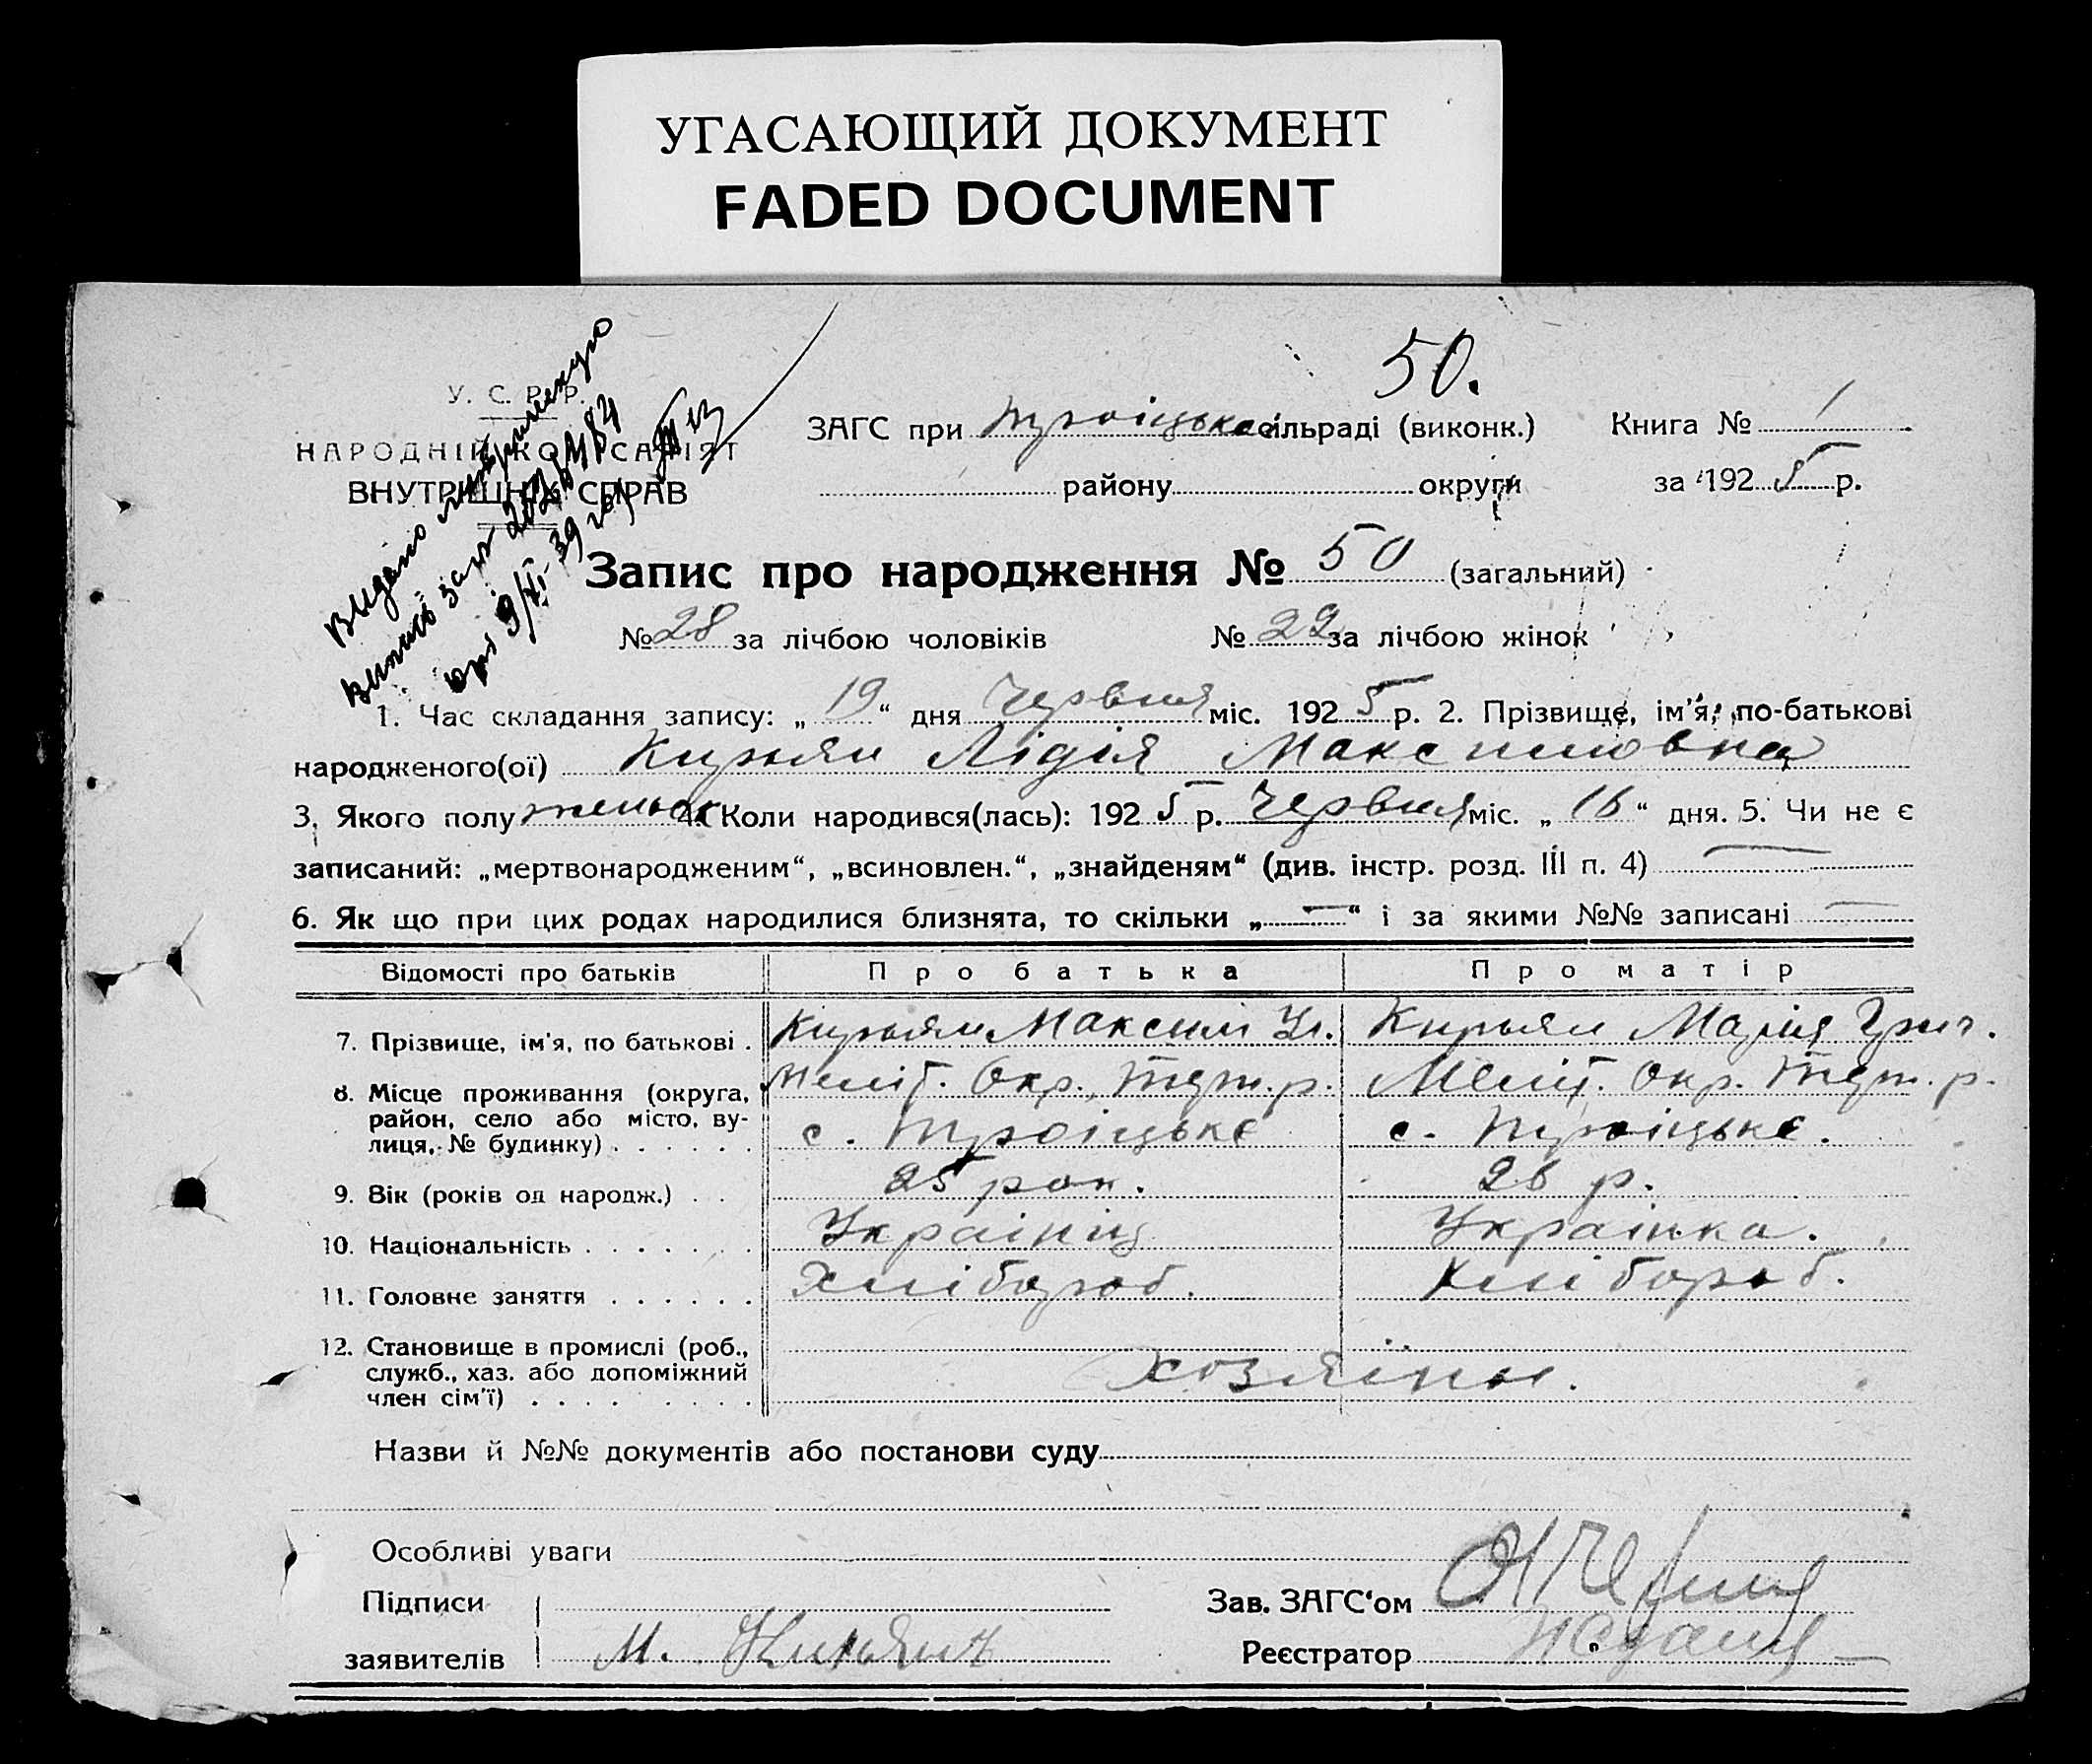 УГАСАЮЩИЙ ДОКУМЕНТ
FADED DOCUMENT
50.
У. С. Р. Р.
НАРОДНІЙ КОМІСАРІЯТ
ВНУТРІШНІХ СПРАВ
Видано
виписъ за №
9/XI-39
ЗАГС при Троіцької сільраді (виконк.) Книга № 1
району округи за 1925 р.
Запис про народження № 50 (загальний)
№ 28 за лічбою чоловіків № 22 за лічбою жінок
1. Час складання запису: „19“ дня Червня міс. 1925 р. 2. Прізвище, ім'я, по-батькові
народженого(ої) Кирьян Лідія Максимовна
3. Якого полу женьск 4. Коли народився(лась): 1925 р. Червня міс. „16“ дня. 5. Чи не є
записаний: „мертвонародженим“, „всиновлен.“, „знайденям“ (див. інстр. розд. III п. 4) —
6. Як що при цих родах народилися близнята, то скільки „—“ і за якими №№ записані —
Відомості про батьків Про батька Про матір
7. Прізвище, ім'я, по батькові . Кирьян Максим Ул. Кирьян Марія Григ.
8. Місце проживання (округа, Меліт. Окр., Терп. р. Меліт. Окр. Терп. р.
район, село або місто, ву-
лиця, № будинку) . . . . . . с. Троіцьке с. Троіцьке.
9. Вік (років од народж.) . . 25 рок. 26 р.
10. Національність . . . . . . . Украінец Украінка.
11. Головне заняття . . . . . . Хлібороб. Хлібороб.
12. Становище в промислі (роб.,
служб., хаз. або допоміжний Хозяіны.
член сім'ї) . . . . . . . .
Назви й №№ документів або постанови суду
Особливі уваги
Підписи Зав. ЗАГС'ом
заявителів М. Кирьян Реєстратор